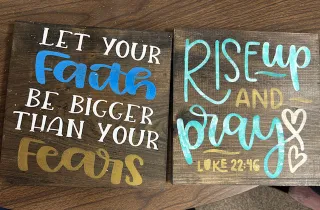 LET YOUR
Faith
BE BIGGER
THAN YOUR
Fears
RISE up
AND
pray
LUKE 22:46